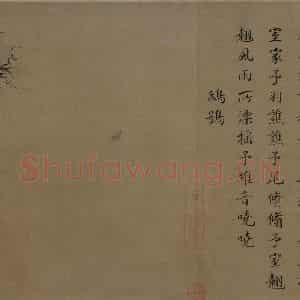 室家予羽譙譙予尾翛翛予室翹
翹風雨所漂搖予維音嘵嘵
鴟鴞
Shufawang.CN